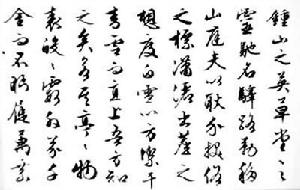 鍾山之英草堂之
靈馳煙驛路勒移
山庭夫以耿介拔俗
之標瀟灑出塵之
想度白雪以方絜干
青雲而直上吾方知
之矣若其亭々物
表皎々霞外芥千
金而不眄屣萬乘